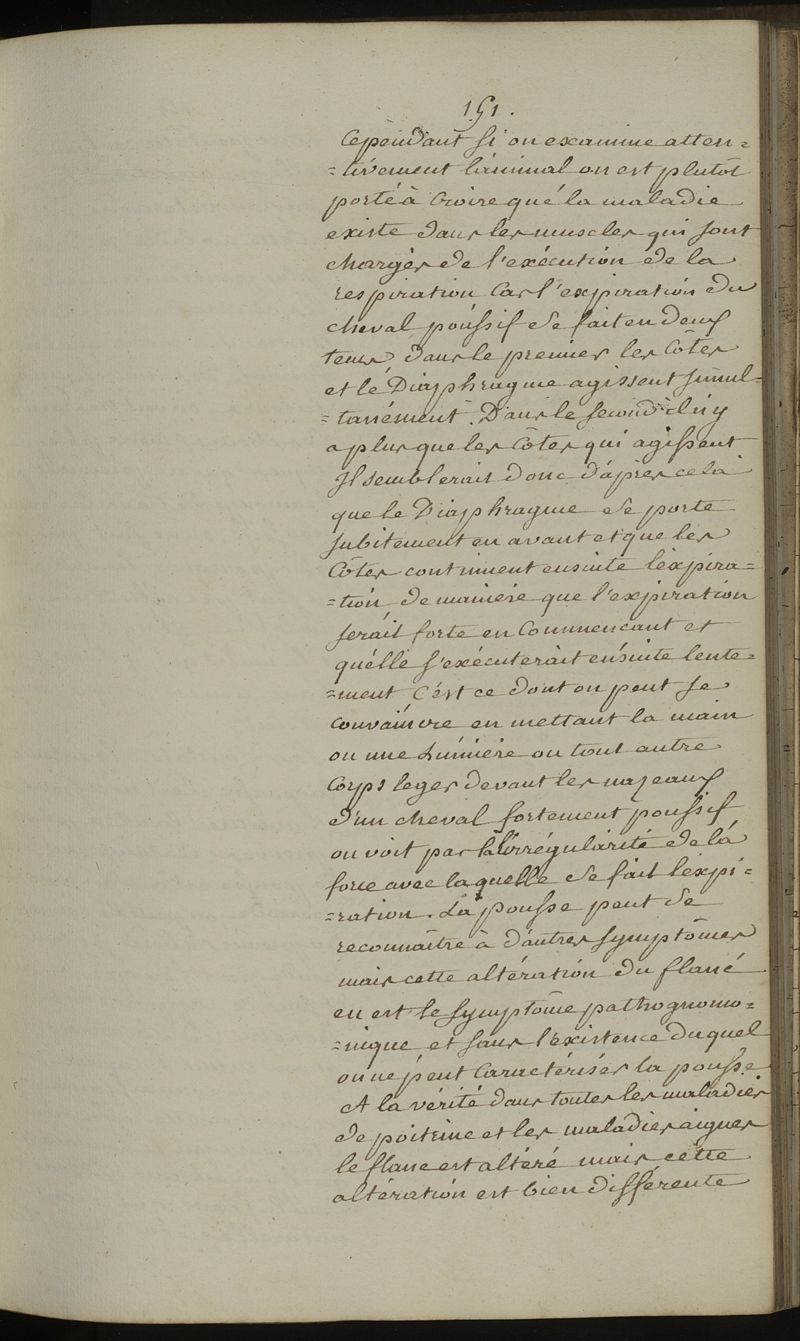 151.
Cependant si on examine atten=
=tivement l'animal on est plutôt
porté à Croire qué la maladie
existe dans les muscles qui sont
chargés de l'exécution de la
respiration Car l'expiration du
cheval poussif se fait en deux
tems, dans le premier les Côtes
et le Diaphragme agissent simul=
=tanément. Dans le second il n'y
a plus que les Côtes qui agissent
Il semblerait donc d'après cela
que le Diaphragme se porte
subitement en avant et que les
Côtes continuent ensuite l'expira=
=tion, de manière que l'expiration
serait forte en Commencant et
qu'élle s'exécuterait ensuite lente=
=ment C'est ce dont on peut se
Convaincre en mettant la main
ou une Lumière ou tout autre
Corps leger devant les nazeaux
d'un cheval fortement poussif
on voit par l'irrégularité de la
force avec laquelle se fait l'expi=
=ration. La pousse peut se
reconnaître à d'autres symptômes
mais cette altération du flanc
en est le symptôme pathognomo=
=nique et sans l'existence duquel
on ne peut Caractériser la pousse
A la vérité dans toutes les maladies
de poitrine et les maladies aigues
le flanc est altéré mais cette
altération est bien différente